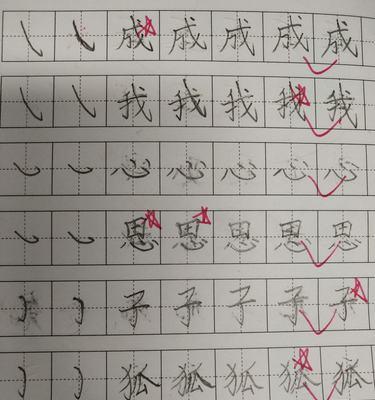 成成成成成
我我我我我
心心心心心
思思思思思
子子子子子
狐狐狐狐狐